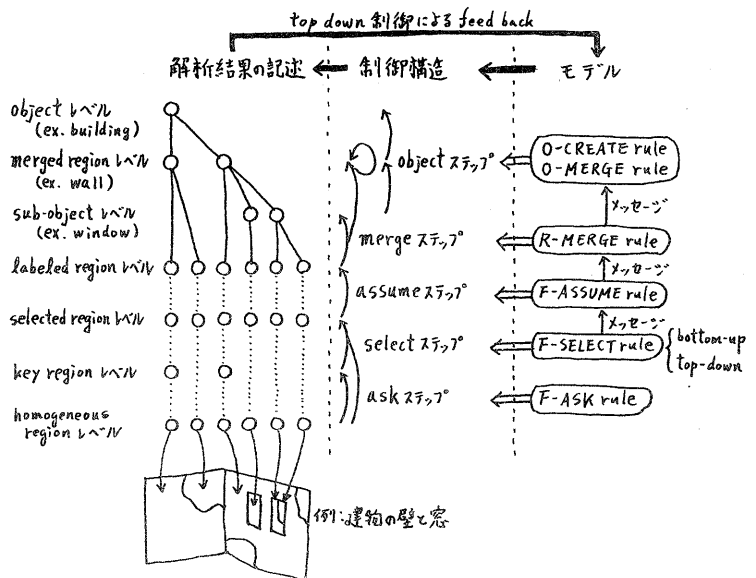 top down 制御による feed back
解析結果の記述
制御構造
モデル
object レベル
(ex. building)
merged region レベル
(ex. wall)
sub-object レベル
(ex. window)
labeled region レベル
selected region レベル
key region レベル
homogeneous
region レベル
object ステップ
merge ステップ
assume ステップ
select ステップ
ask ステップ
O-CREATE rule
O-MERGE rule
メッセージ
R-MERGE rule
メッセージ
F-ASSUME rule
メッセージ
F-SELECT rule
bottom-up
top-down
F-ASK rule
例:建物の壁と窓